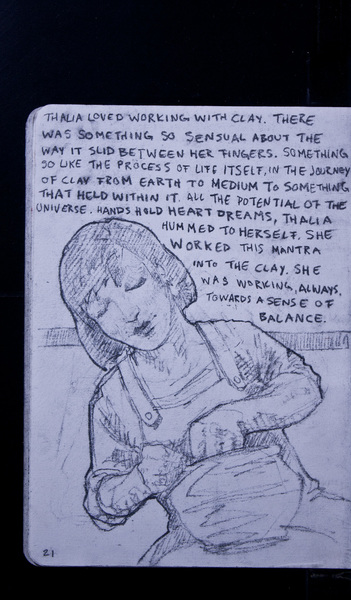 THALIA LOVED WORKING WITH CLAY. THERE
WAS SOMETHING SO SENSUAL ABOUT THE
WAY IT SLID BETWEEN HER FINGERS. SOMETHING
SO LIKE THE PROCESS OF LIFE ITSELF, IN THE JOURNEY
OF CLAY FROM EARTH TO MEDIUM TO SOMETHING
THAT HELD WITHIN IT. ALL THE POTENTIAL OF THE
UNIVERSE. HANDS HOLD HEART DREAMS, THALIA
HUMMED TO HERSELF. SHE
WORKED THIS MANTRA
INTO THE CLAY. SHE
WAS WORKING, ALWAYS,
TOWARDS A SENSE OF
BALANCE.
21